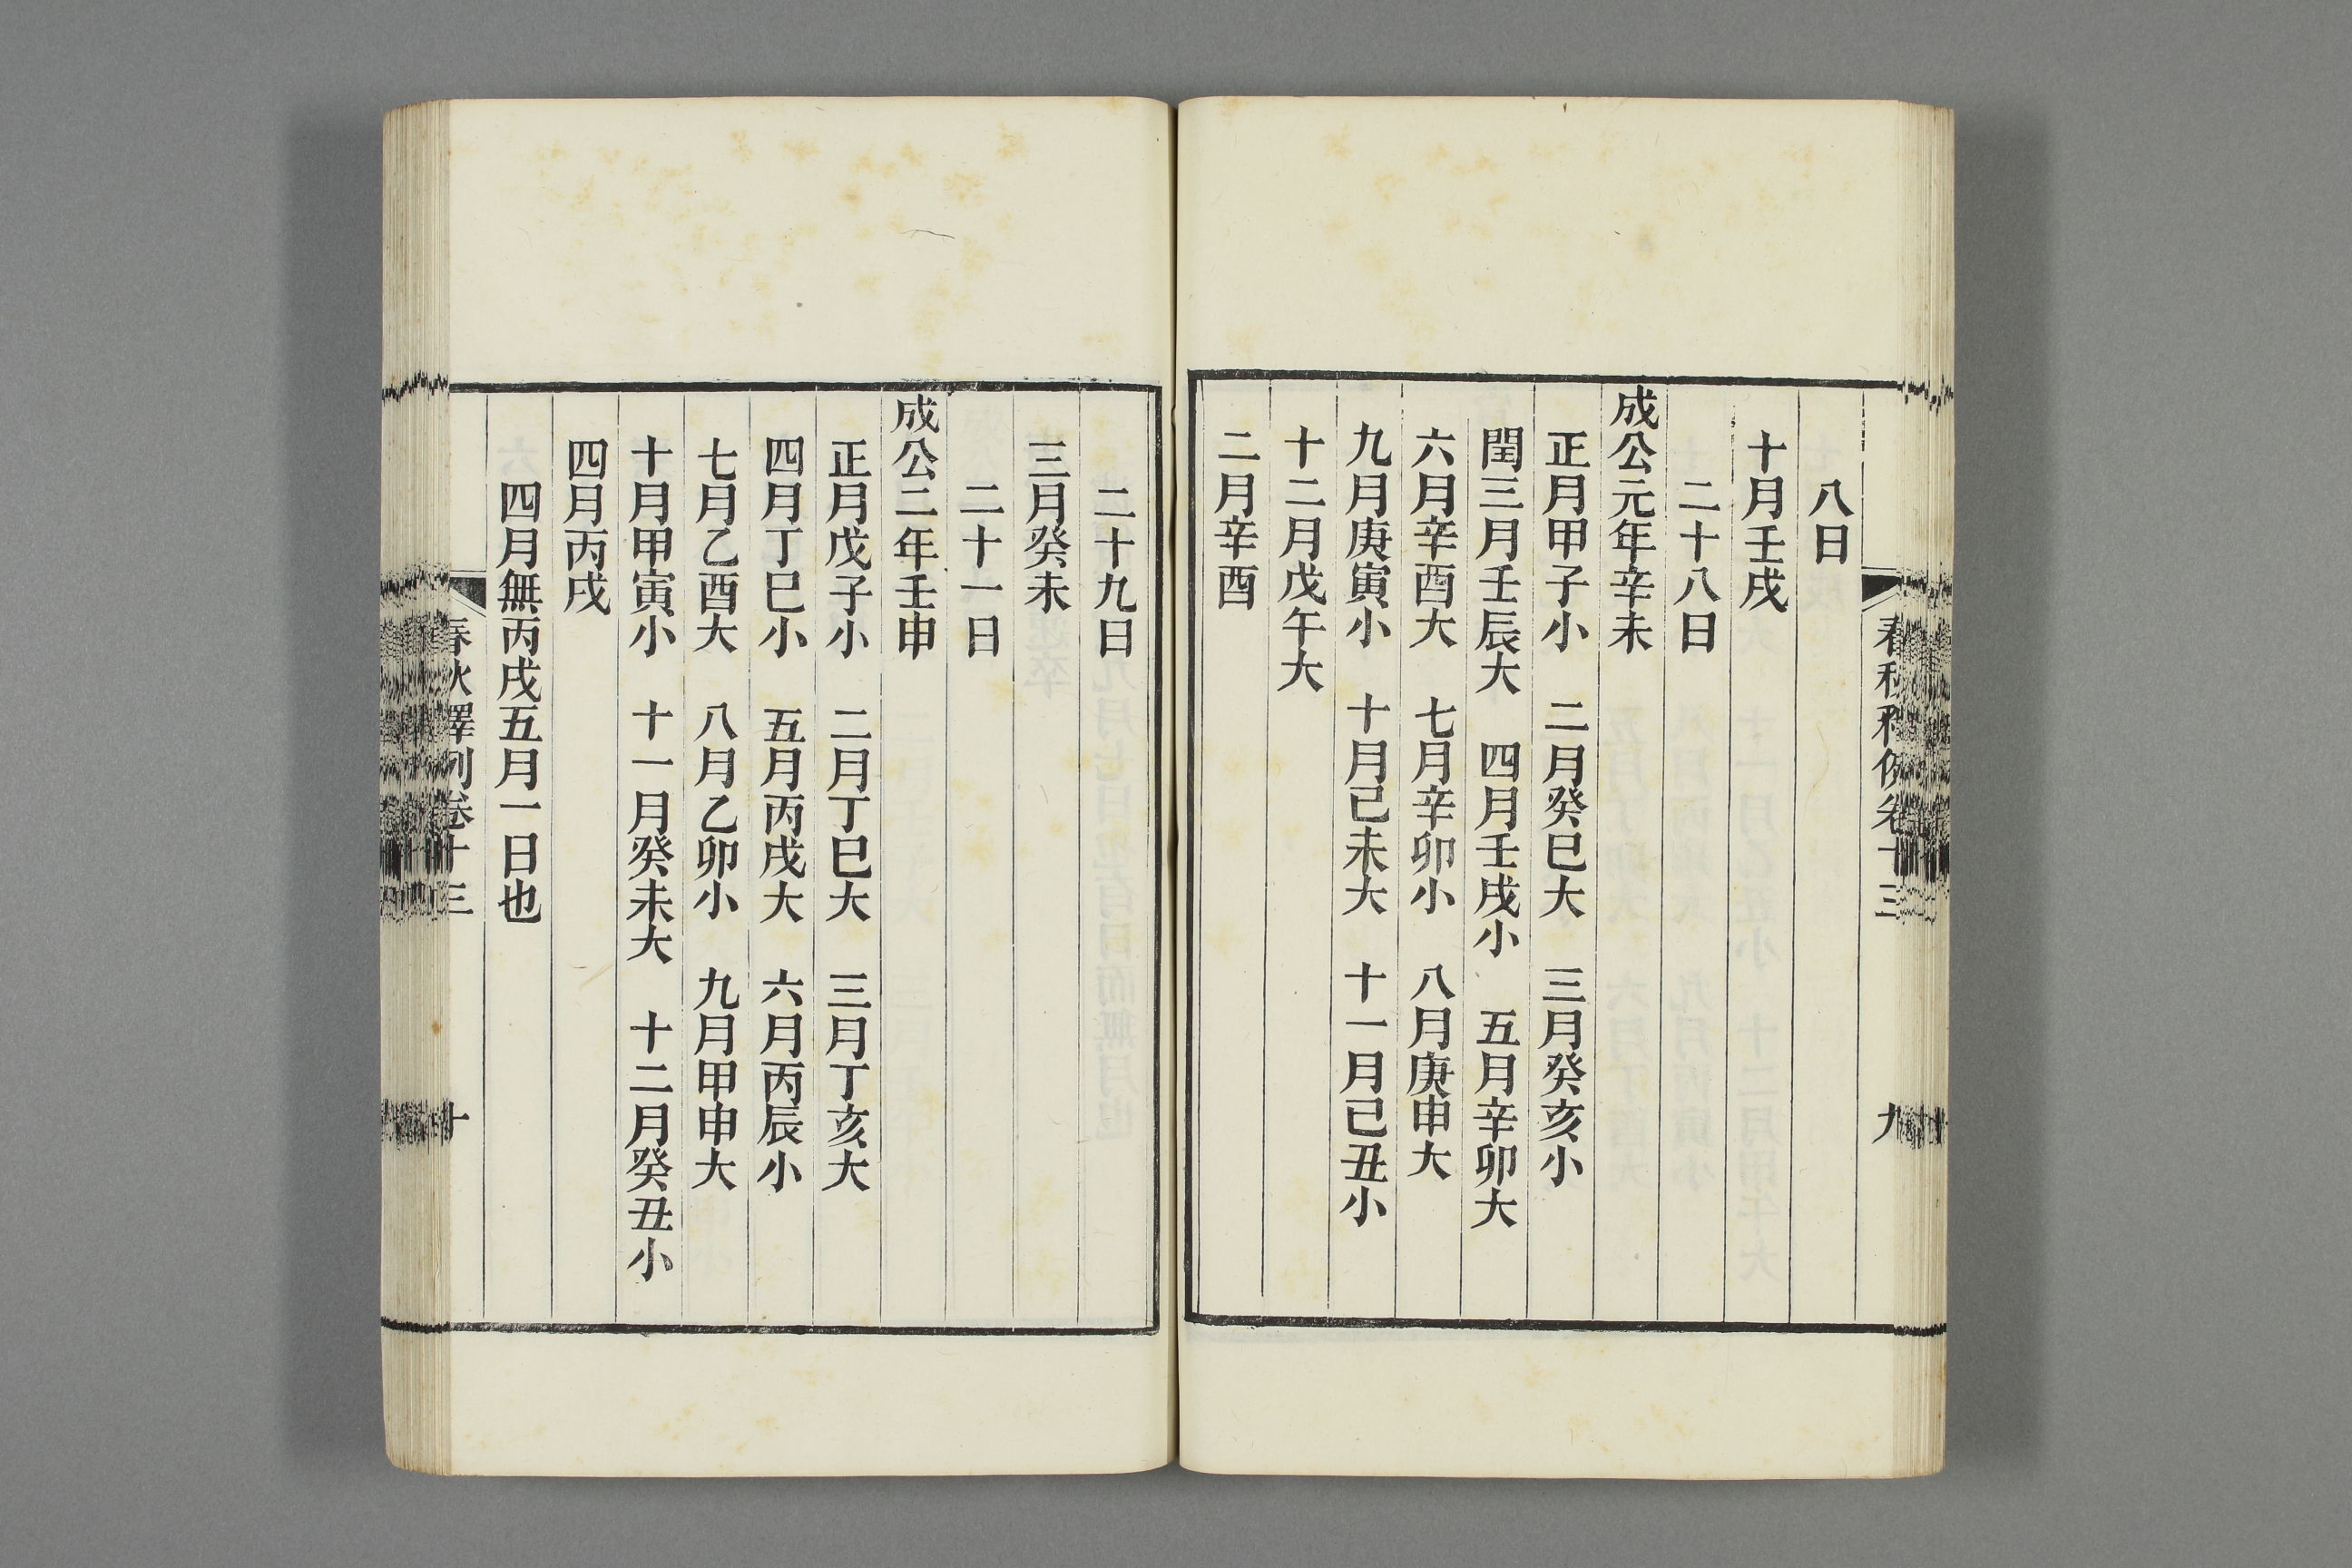 八日
十月壬戌
二十八日
成公元年辛未
正月甲子小　二月癸巳大　三月癸亥小
閏三月壬辰大　四月壬戌小　五月辛卯大
六月辛酉大　七月辛卯小　八月庚申大
九月庚寅小　十月己未大　十一月己丑小
十二月戊午大
二月辛酉
二十九日
三月癸未
二十一日
成公二年壬申
正月戊子小　二月丁巳大　三月丁亥大
四月丁巳小　五月丙戌大　六月丙辰小
七月乙酉大　八月乙卯小　九月甲申大
十月甲寅小　十一月癸未大　十二月癸丑小
四月丙戌
四月無丙戌五月一日也
春秋釋例卷十三　十